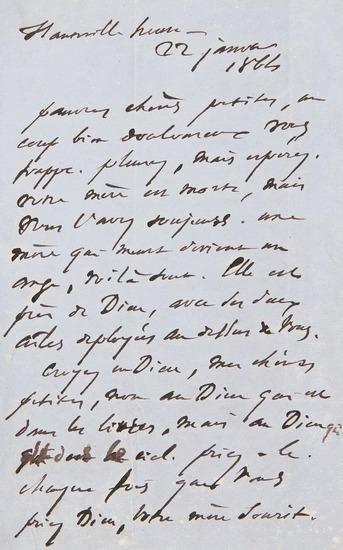 Hauteville house —
22 janvier
1864
pauvres chères petites, un
coup bien douloureux vous
frappe. pleurez, mais espérez.
votre mère est morte, mais
vous l'avez toujours. une
mère qui meurt devient un
ange, voilà tout. Elle est
près de Dieu, avec ses deux
ailes déployées au dessus de vous.
Croyez en Dieu, mes chères
petites, non au Dieu qui est
dans les livres, mais au Dieu qui
est dans le ciel. priez-le.
chaque fois que vous
priez Dieu, votre mère sourit.